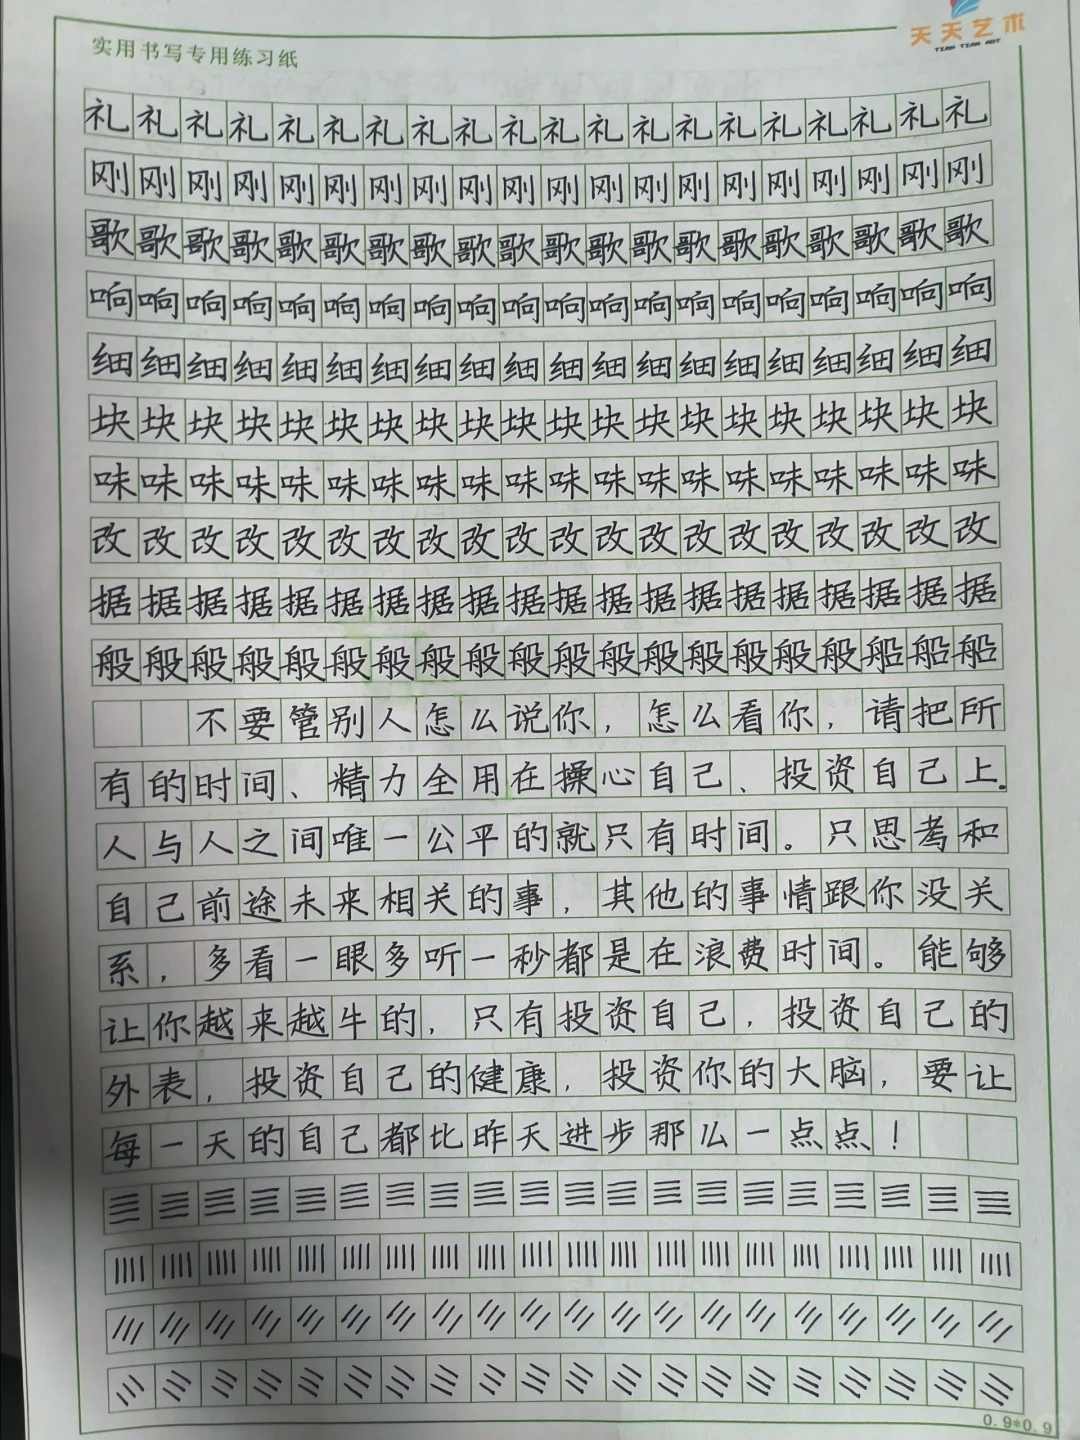 实用书写专用练习纸
天天艺术
TIAN TIAN ART
礼礼礼礼礼礼礼礼礼礼礼礼礼礼礼礼礼礼礼礼
刚刚刚刚刚刚刚刚刚刚刚刚刚刚刚刚刚刚刚刚
歌歌歌歌歌歌歌歌歌歌歌歌歌歌歌歌歌歌歌歌
响响响响响响响响响响响响响响响响响响响响
细细细细细细细细细细细细细细细细细细细细
块块块块块块块块块块块块块块块块块块块块
味味味味味味味味味味味味味味味味味味味味
改改改改改改改改改改改改改改改改改改改改
据据据据据据据据据据据据据据据据据据据据
般般般般般般般般般般般般般般般般般船船船
不要管别人怎么说你，怎么看你，请把所
有的时间、精力全用在操心自己、投资自己上。
人与人之间唯一公平的就只有时间。只思考和
自己前途未来相关的事，其他的事情跟你没关
系，多看一眼多听一秒都是在浪费时间。能够
让你越来越牛的，只有投资自己，投资自己的
外表，投资自己的健康，投资你的大脑，要让
每一天的自己都比昨天进步那么一点点！
0.9*0.9